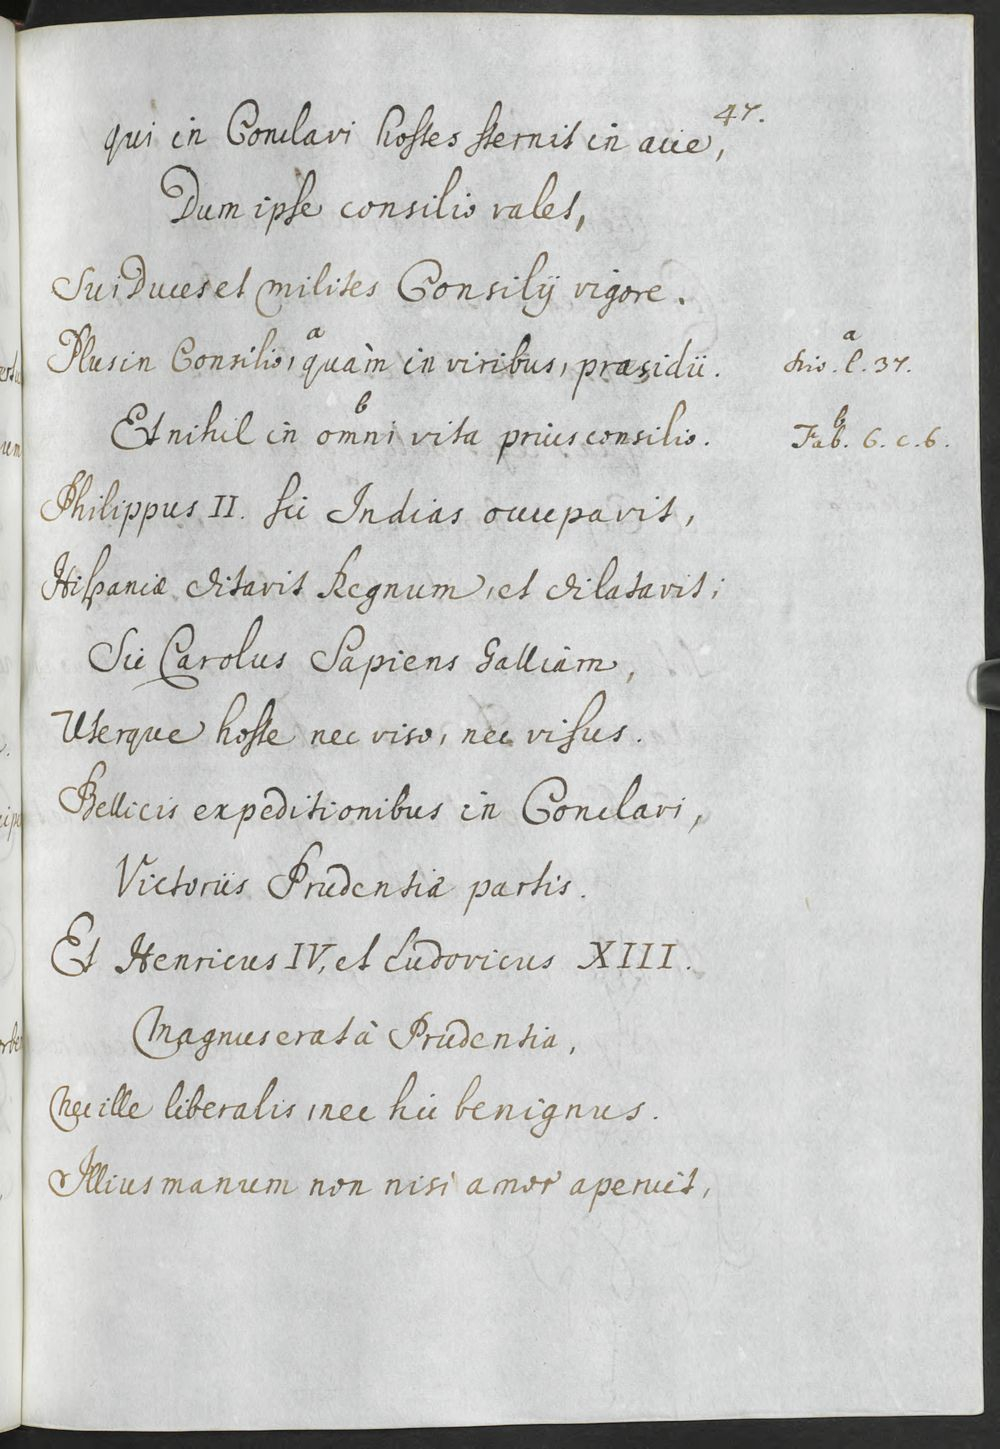 47.
qui in Conclavi hostes sternit in acie,
Dum ipse consilio valet,
Sui Duces et milites Consilij vigore.
Plus in Consilio, a quàm in viribus, præsidii. a Livio. l. 37.
Et nihil in b omni vita prius consilio. b Fab. 6. c. 6.
Philippus II. sic Indias occupavit,
Hispaniæ ditavit Regnum, et dilatavit;
Sic Carolus Sapiens Galliam,
Uterque hoste nec viso, nec visus.
Bellicis expeditionibus in Conclavi,
Victoriis Prudentiâ partis.
Et Henricus IV, et Ludovicus XIII.
Magnus erat à Prudentia,
Nec ille liberalis, nec hic benignus.
Illius manum non nisi amor aperuit,